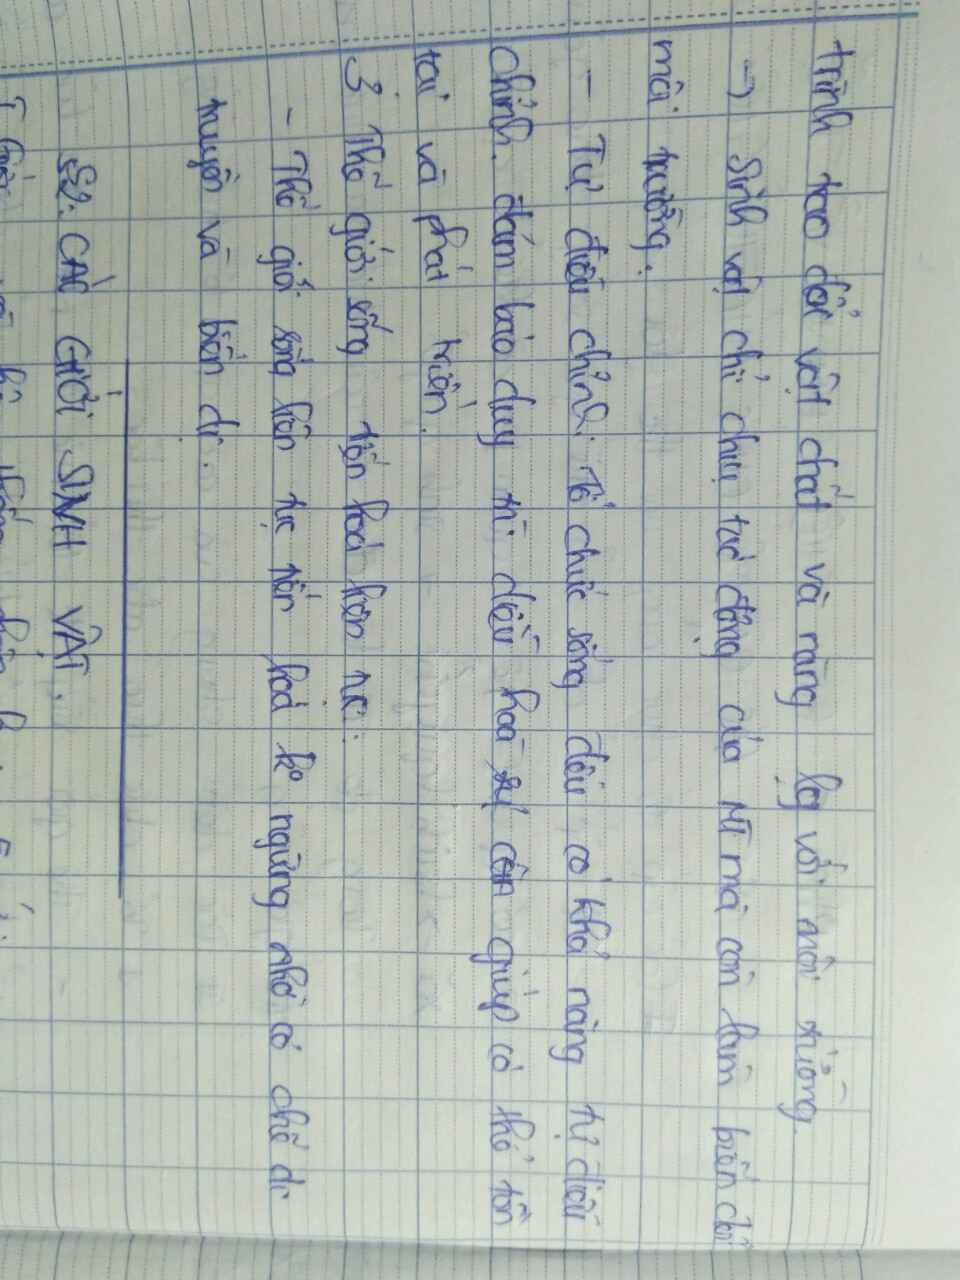 trình trao đổi vật chất và năng lg với môi trường.
→ Sinh vật chỉ chịu tác động của MT mà còn làm biến đổi
môi trường.
- Tự điều chỉnh: Tổ chức sống đều có khả năng tự điều
chỉnh. đảm bảo duy trì điều hoà sự cân giúp có thể tồn
tại và phát triển.
3 Thế giới sống tiến hoá liên tục:
- Thế giới sống liên tục tiến hoá ko ngừng nhờ có chế di
truyền và biến dị.
§2: CÁC GIỚI SINH VẬT.